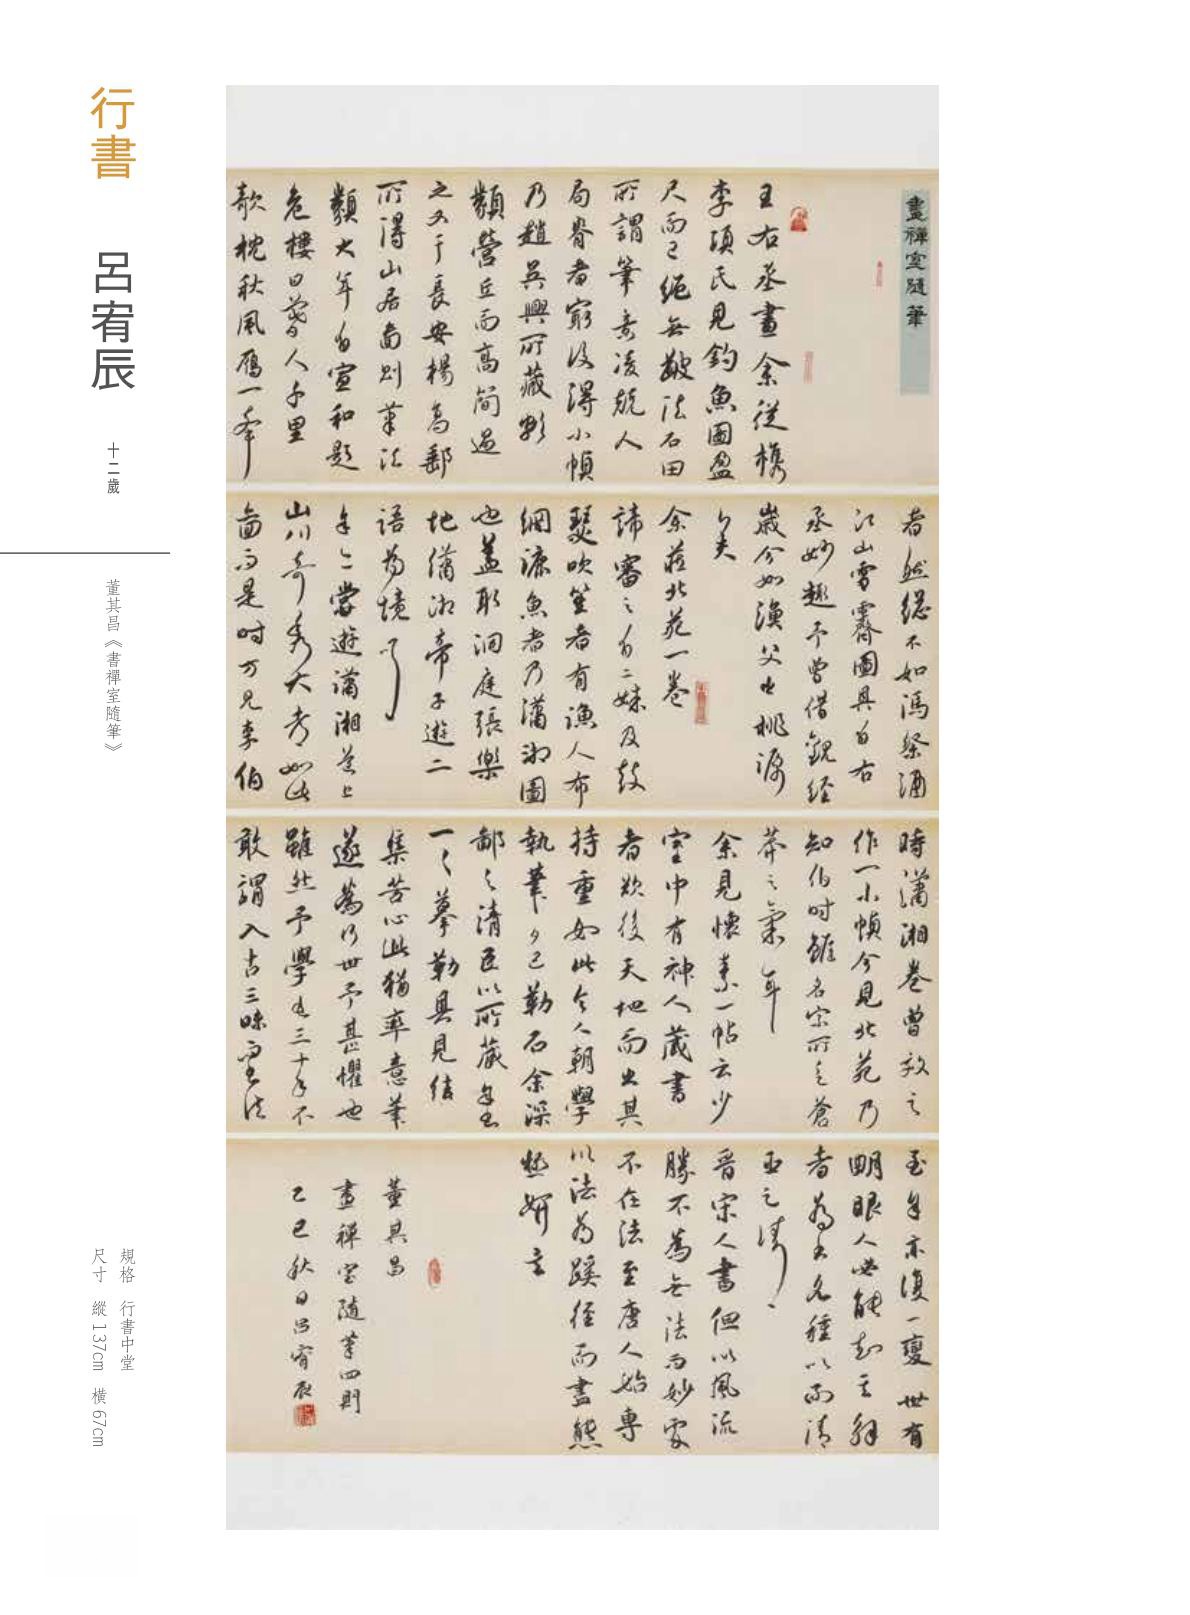 行書
呂宥辰
十二歲
董其昌《書禪室隨筆》
規格 行書中堂
尺寸 縱137cm 橫67cm
畫禪室隨筆
王右丞畫余從槜
李項氏見釣魚圖盈
尺而已絕無皴法石田
所謂筆意凌競人
局脊者窮後得小幀
乃趙吳興所藏頗
類營丘而高簡過
之又于長安楊高郵
所得山居圖則筆法
類大年有宣和題
危樓日暮人千里
欹枕秋風雁一聲
者然總不如馮祭酒
江山雪霽圖具有右
丞妙趣予曾借觀經
歲今如漁父出桃源
矣
余藏北苑一卷
諦審之有二妹及鼓
瑟吹笙者有漁人布
網漉魚者乃瀟湘圖
也蓋取洞庭張樂
地瀟湘帝子遊二
語為境耳
余亦嘗遊瀟湘道上
山川奇秀大都如此
圖而是時方見李伯
時瀟湘卷曾效之
作一小幀今見北苑乃
知伯時雖名宗所乏蒼
莽之氣耳
余見懷素一帖云少
室中有神人藏書
者欲後天地而出其
持重如此今人朝學
執筆夕已勒石余深
鄙之清臣以所藏余書
一一摹勒具見結
集苦心此猶率意筆
遂為行世予甚懼也
雖然予學書三十年不
敢謂入古三昧而書法
至余亦復一變世有
明眼人必能知其解
者為大名種以制清
臣之請
晉宋人書但以風流
勝不為無法而妙處
不在法至唐人始專
以法為蹊徑而盡態
極妍矣
董其昌
畫禪室隨筆四則
乙巳秋日呂宥辰